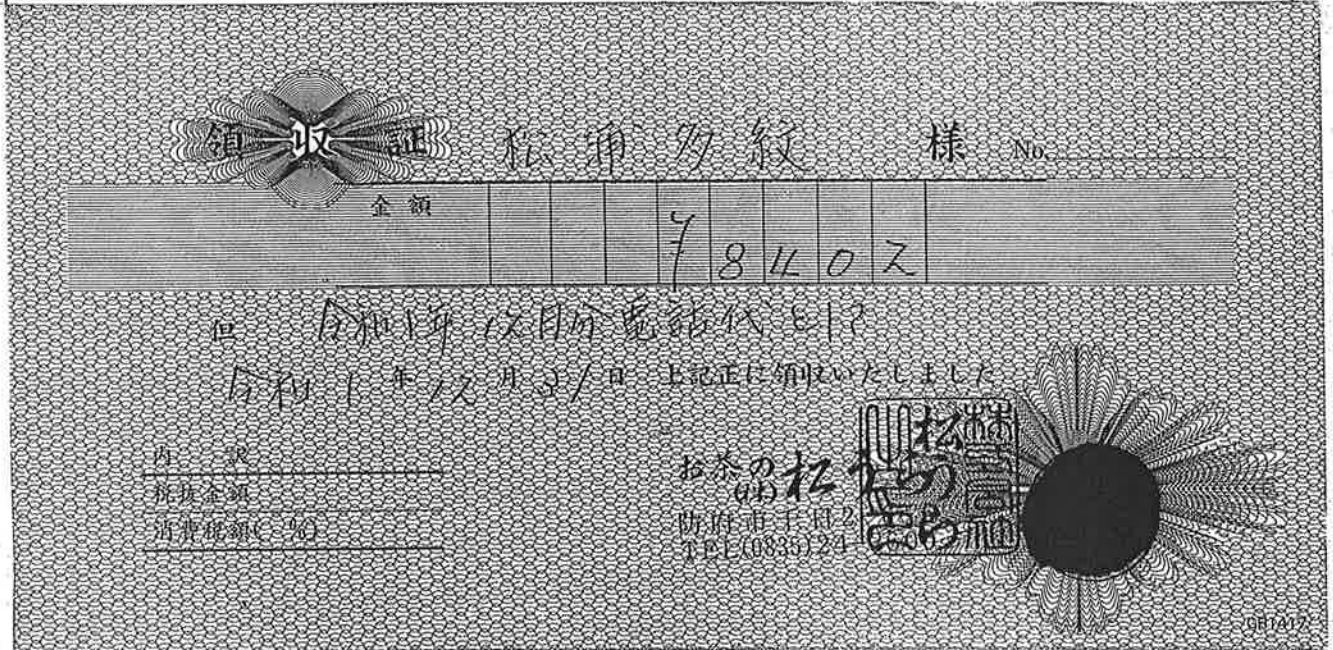 領収証 松浦多紋 様 No.
金額 ¥8402
但 令和1年12月分電話代として
令和1年12月31日 上記正に領収いたしました
内訳
税抜金額
消費税額( %)
お茶の
(株)松
防府市千日2
TEL(0835)24
GB1417